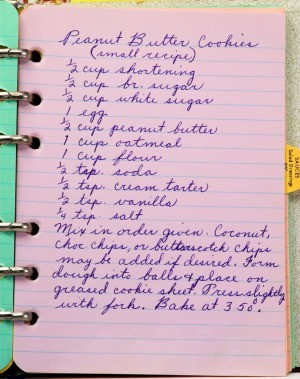 Peanut Butter Cookies
(small recipe)
1/2 cup shortening
1/2 cup br. sugar
1/2 cup white sugar
1 egg
1/2 cup peanut butter
1 cup oatmeal
1 cup flour
1/2 tsp. soda
1/2 tsp. cream tarter
1/2 tsp. vanilla
1/4 tsp. salt
Mix in order given. Coconut,
choc chips, or butterscotch chips
may be added if desired. Form
dough into balls & place on
greased cookie sheet. Press slightly
with fork. Bake at 350°.
SAUCES
Salad Dressings